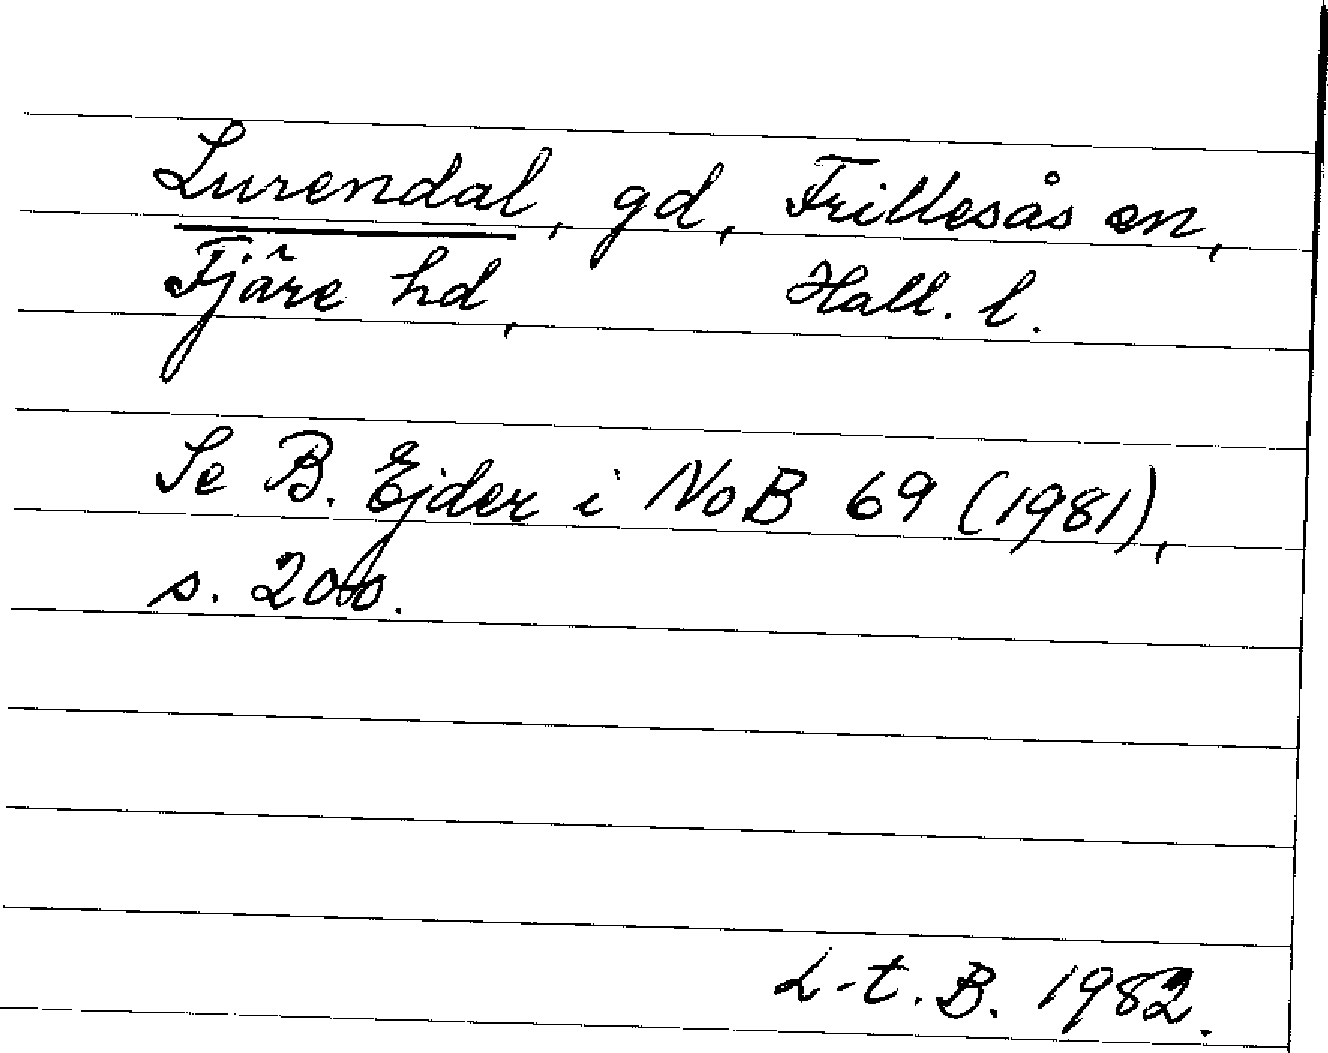 Lurendal, gd, Frillesås sn,
Fjäre hd, Hall. l.
Se B. Ejder i NoB 69 (1981),
s. 200.
L-t. B. 1982.